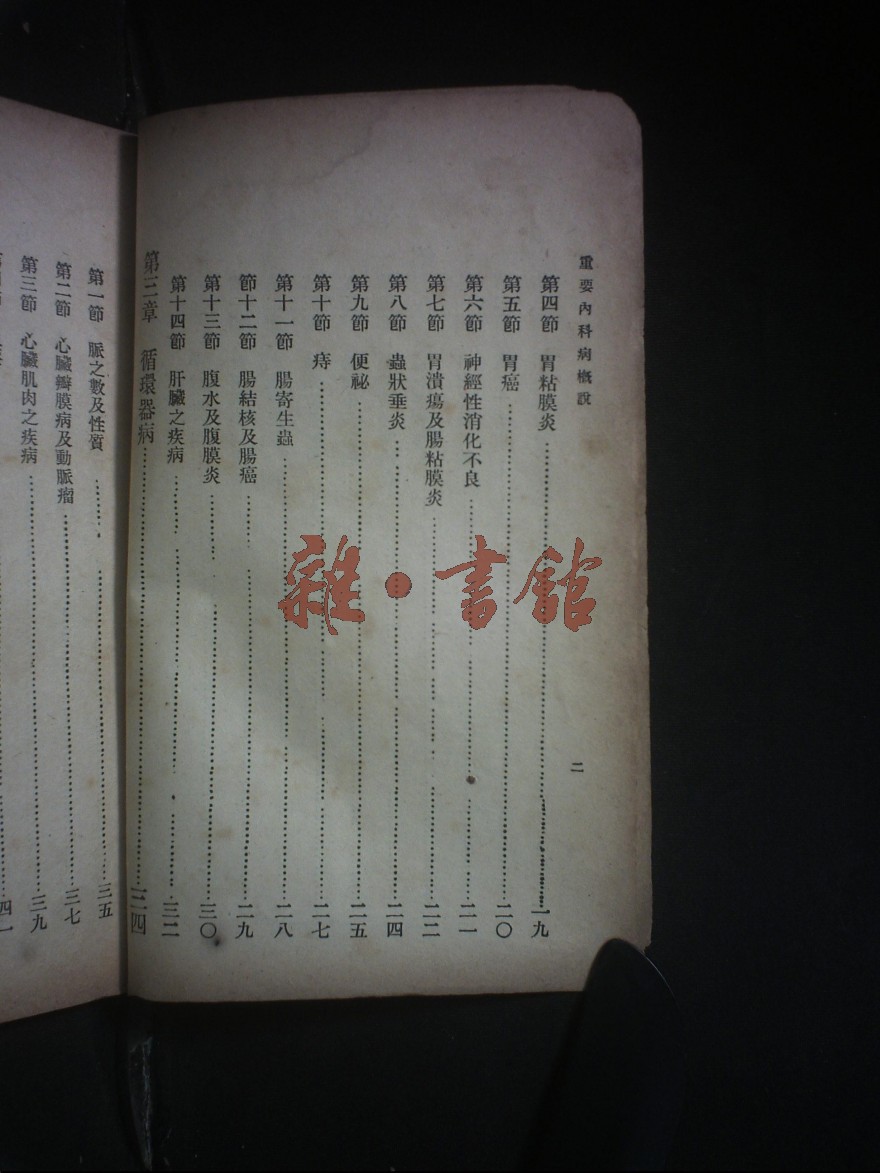 重要內科病槪說
二
第四節 胃粘膜炎……一九
第五節 胃癌……二〇
第六節 神經性消化不良……二一
第七節 胃潰瘍及腸粘膜炎……二二
第八節 蟲狀垂炎……二四
第九節 便祕……二五
第十節 痔……二七
第十一節 腸寄生蟲……二八
節十二節 腸結核及腸癌……二九
第十三節 腹水及腹膜炎……三〇
第十四節 肝臟之疾病……三二
第三章 循環器病……三四
第一節 脈之數及性質……三五
第二節 心臟瓣膜病及動脈瘤……三七
第三節 心臟肌肉之疾病……三九
雜·書館